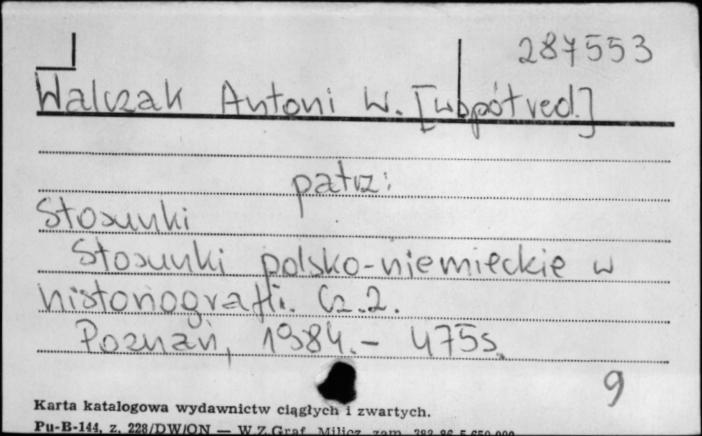 287553
Walczak Antoni W. [współred.]
patrz:
Stosunki
Stosunki polsko-niemieckie w
historiografii. Cz.2.
Poznań, 1984.- 475s.
9
Karta katalogowa wydawnictw ciągłych i zwartych.
Pu-B-144, z. 228/DW/ON — W.Z.Graf. Milicz zam.